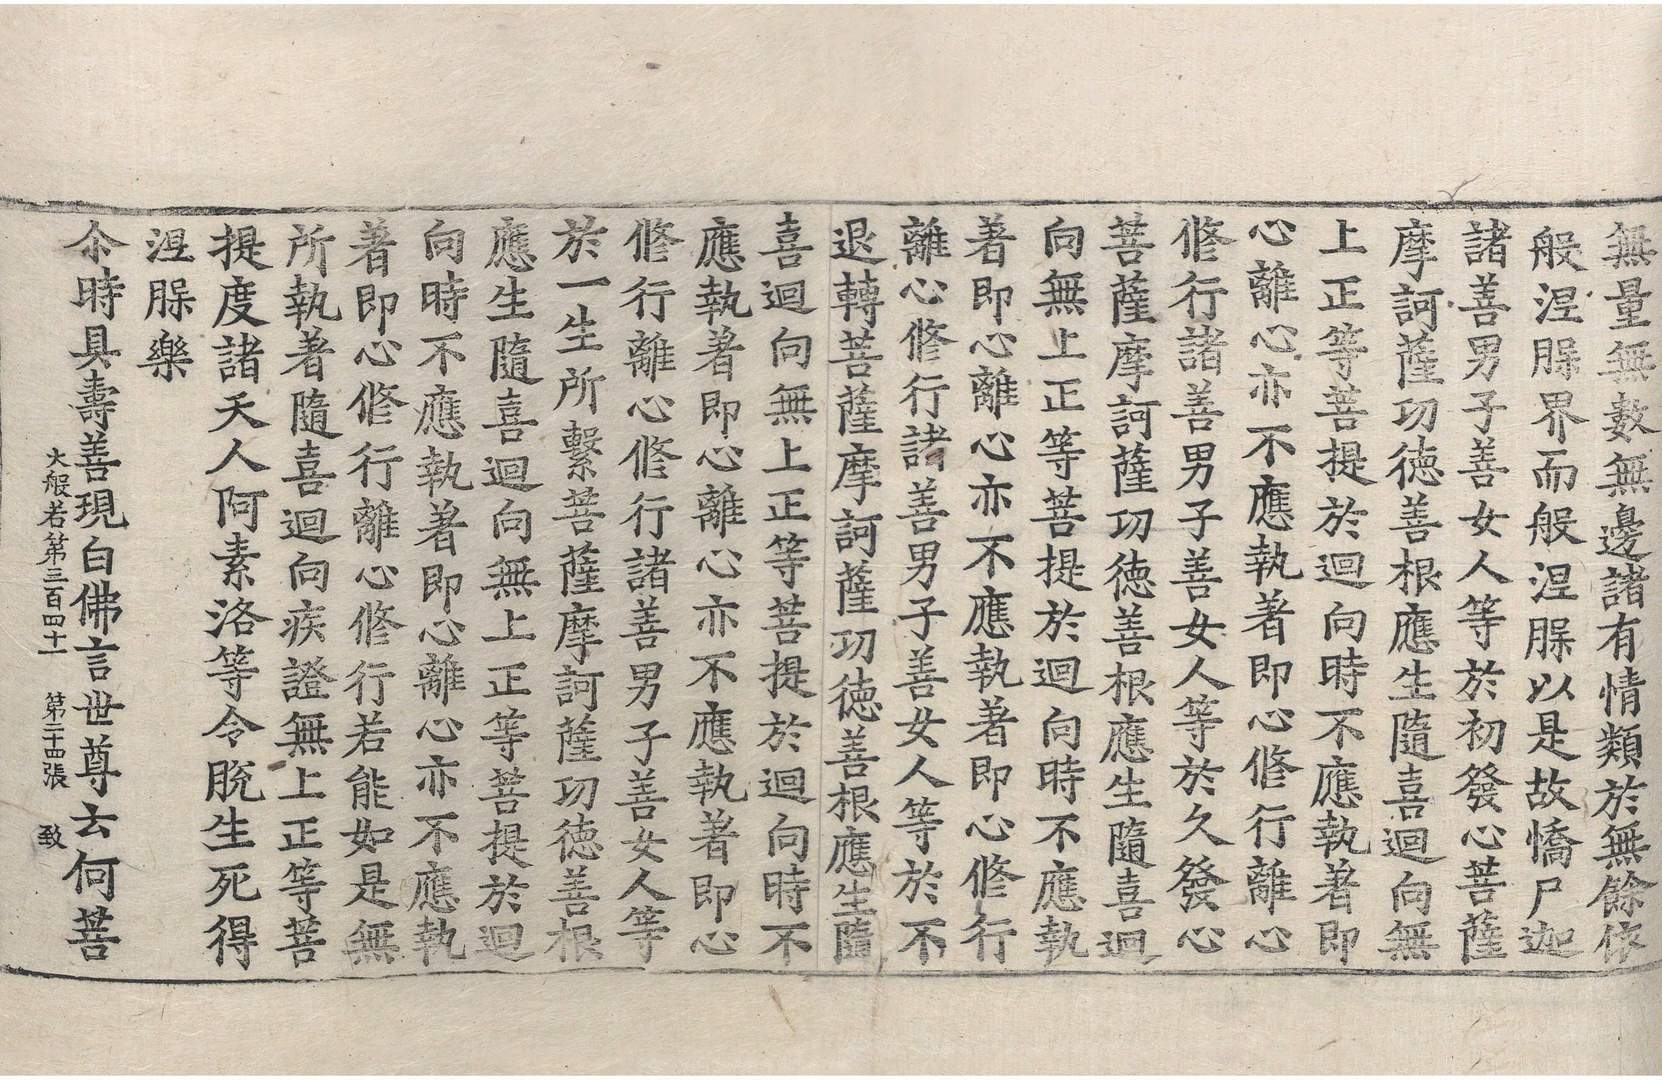 無量無數無邊諸有情類於無餘依
般涅腂界而般涅腂以是故憍尸迦
諸善男子善女人等於初發心菩薩
摩訶薩功德善根應生隨喜迴向無
上正等菩提於迴向時不應執著即
心離心亦不應執著即心修行離心
修行諸善男子善女人等於久發心
菩薩摩訶薩功德善根應生隨喜迴
向無上正等菩提於迴向時不應執
著即心離心亦不應執著即心修行
離心修行諸善男子善女人等於不
退轉菩薩摩訶薩功德善根應生隨
喜迴向無上正等菩提於迴向時不
應執著即心離心亦不應執著即心
修行離心修行諸善男子善女人等
於一生所繫菩薩摩訶薩功德善根
應生隨喜迴向無上正等菩提於迴
向時不應執著即心離心亦不應執
著即心修行離心修行若能如是無
所執著隨喜迴向疾證無上正等菩
提度諸天人阿素洛等令脫生死得
涅腂樂
尒時具壽善現白佛言世尊云何菩
大般若第三百四十一 第二十四張 致